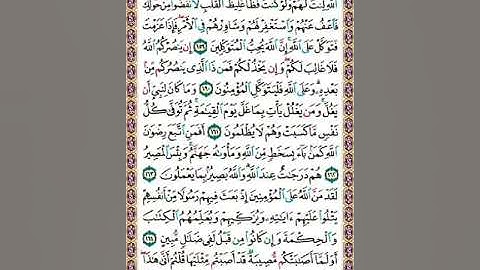 اللَّهِ لِنتَ لَهُمْ وَلَوْ كُنتَ فَظًّا غَلِيظَ الْقَلْبِ لَانفَضُّوا مِنْ حَوْلِكَ
فَاعْفُ عَنْهُمْ وَاسْتَغْفِرْ لَهُمْ وَشَاوِرْهُمْ فِي الْأَمْرِ فَإِذَا عَزَمْتَ
فَتَوَكَّلْ عَلَى اللَّهِ إِنَّ اللَّهَ يُحِبُّ الْمُتَوَكِّلِينَ ١٥٩ إِن يَنصُرْكُمُ اللَّهُ
فَلَا غَالِبَ لَكُمْ وَإِن يَخْذُلْكُمْ فَمَن ذَا الَّذِي يَنصُرُكُم مِّن
بَعْدِهِ وَعَلَى اللَّهِ فَلْيَتَوَكَّلِ الْمُؤْمِنُونَ ١٦٠ وَمَا كَانَ لِنَبِيٍّ أَن
يَغُلَّ وَمَن يَغْلُلْ يَأْتِ بِمَا غَلَّ يَوْمَ الْقِيَامَةِ ثُمَّ تُوَفَّى كُلُّ
نَفْسٍ مَّا كَسَبَتْ وَهُمْ لَا يُظْلَمُونَ ١٦١ أَفَمَنِ اتَّبَعَ رِضْوَانَ
اللَّهِ كَمَن بَاءَ بِسَخَطٍ مِّنَ اللَّهِ وَمَأْوَاهُ جَهَنَّمُ وَبِئْسَ الْمَصِيرُ ١٦٢
هُمْ دَرَجَاتٌ عِندَ اللَّهِ وَاللَّهُ بَصِيرٌ بِمَا يَعْمَلُونَ ١٦٣
لَقَدْ مَنَّ اللَّهُ عَلَى الْمُؤْمِنِينَ إِذْ بَعَثَ فِيهِمْ رَسُولًا مِّنْ أَنفُسِهِمْ
يَتْلُوا عَلَيْهِمْ آيَاتِهِ وَيُزَكِّيهِمْ وَيُعَلِّمُهُمُ الْكِتَابَ
وَالْحِكْمَةَ وَإِن كَانُوا مِن قَبْلُ لَفِي ضَلَالٍ مُّبِينٍ ١٦٤
أَوَلَمَّا أَصَابَتْكُم مُّصِيبَةٌ قَدْ أَصَبْتُم مِّثْلَيْهَا قُلْتُمْ أَنَّى هَٰذَا